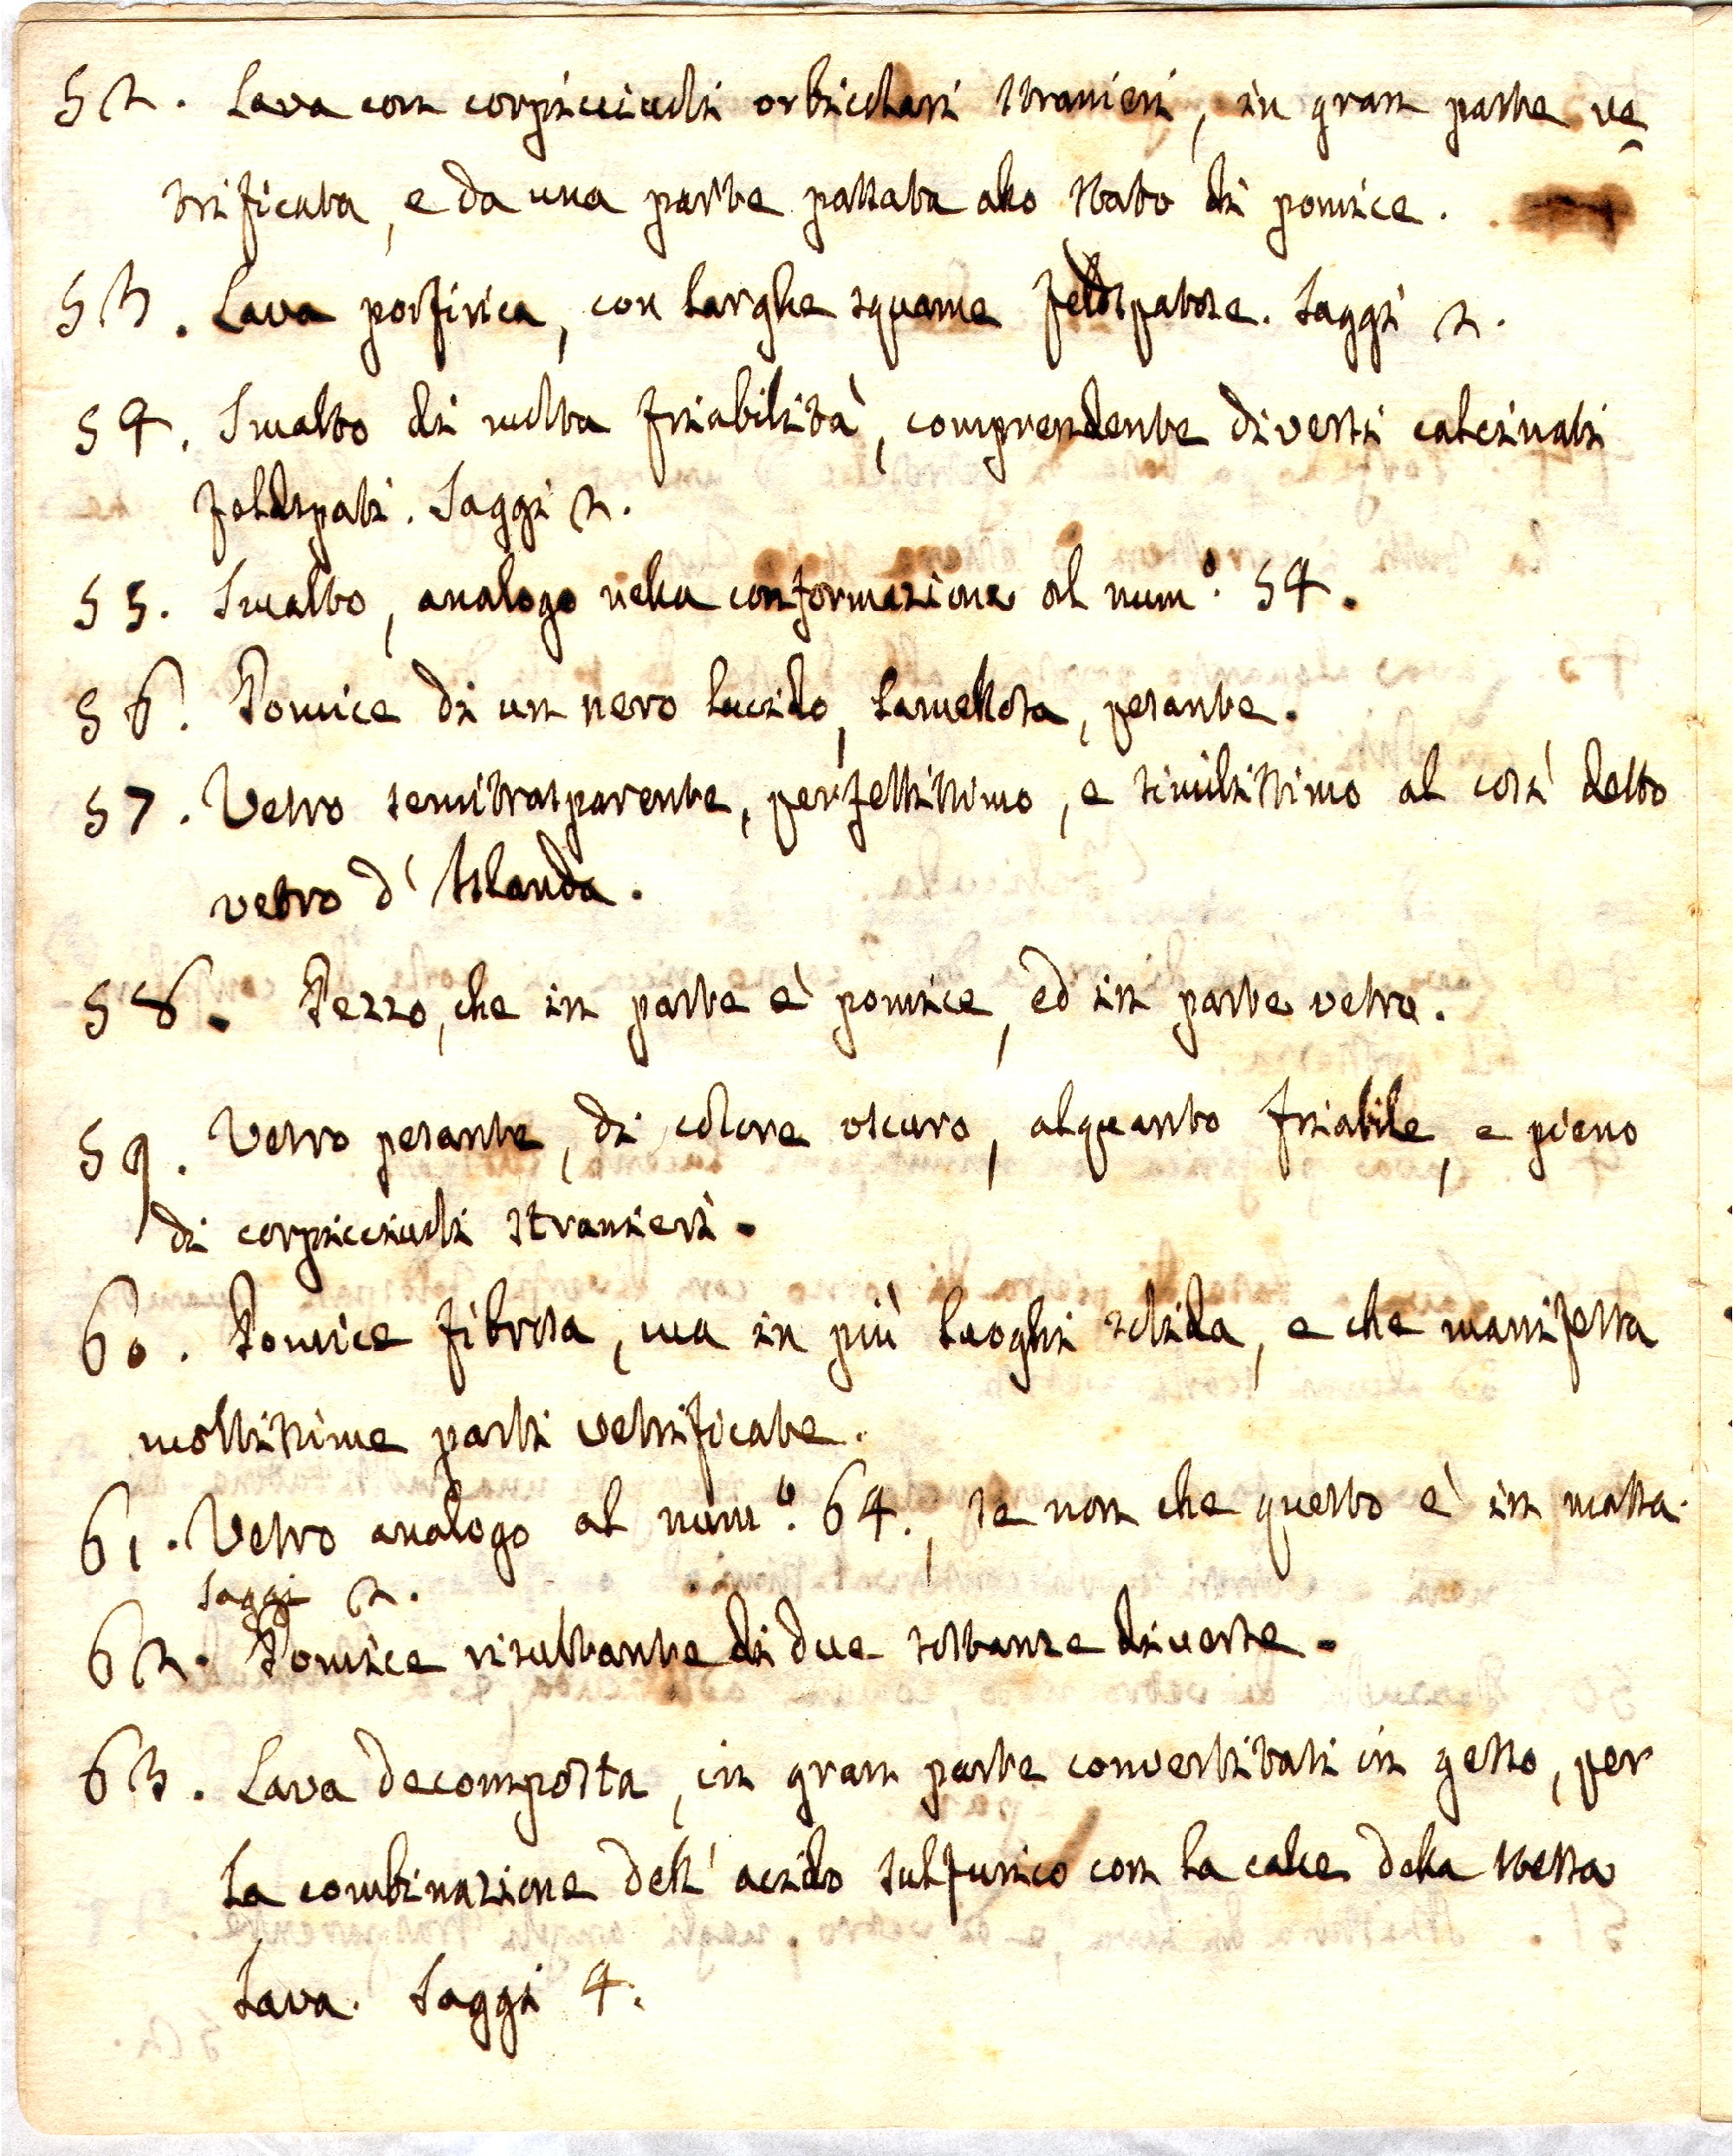 52. Lava con corpicciuoli orbicolari stranieri, in gran parte ve
trificata, e da una parte passata allo stato di pomice.
53. Lava porfirica, con larghe squame feldspatose. Saggi 2.
54. Smalto di molta friabilità, comprendente diversi calcinati
feldspati. Saggi 2.
55. Smalto, analogo nella conformazione al num.° 54.
56. Pomice di un nero lucido, lamellosa, pesante.
57. Vetro semitrasparente, perfettissimo, e similissimo al così detto
vetro d'Islanda.
58. Pezzo, che in parte è pomice, ed in parte vetro.
59. Vetro pesante, di colore oscuro, alquanto friabile, e pieno
di corpicciuoli stranieri.
60. Pomice fibrosa, ma in più luoghi solida, e che manifesta
moltissime parti vetrificate.
61. Vetro analogo al num.° 64., se non che questo è in massa.
Saggi 2.
62. Pomice risultante di due sostanze diverse.
63. Lava decomposta, in gran parte convertitasi in gesso, per
la combinazione dell'acido sulfurico con la calce della stessa
lava. Saggi 4.